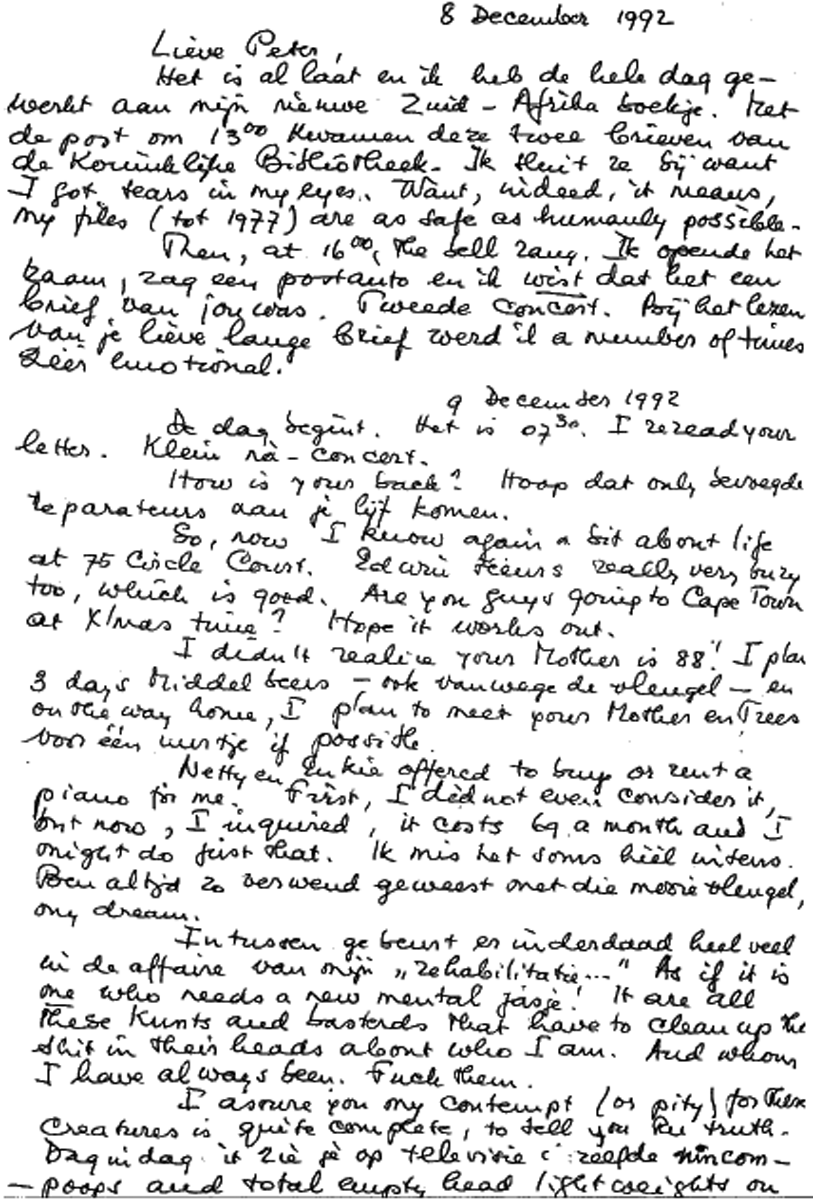 8 December 1992
Lieve Peter,
Het is al laat en ik heb de hele dag ge-
werkt aan mijn nieuwe Zuid-Afrika boekje. Met
de post om 13⁰⁰ kwamen deze twee brieven van
de Koninklijke Bibliotheek. Ik sluit ze bij want
I got tears in my eyes. Want, indeed, it means,
my files (tot 1977) are as safe as humanly possible.
Then, at 16⁰⁰, the bell rang. Ik opende het
raam, zag een postauto en ik wist dat het een
brief van jou was. Tweede concert. Bij het lezen
van je lieve lange brief werd ik a number of times
zéér emotional.
9 December 1992
De dag begint. Het is 07³⁰. I reread your
letter. Klein na-concert.
How is your back? Hoop dat only bevoegde
reparateurs aan je lijf komen.
So, now I know again a bit about life
at 75 Circle Court. Edwin seems really very busy
too, which is good. Are you guys going to Cape Town
at X'mas time? Hope it works out.
I didn't realize your Mother is 88! I plan
3 days Middelbeers - ook vanwege de vleugel - en
on the way home, I plan to meet your Mother en Trees
voor één uurtje if possible.
Netty en Enkie offered to buy or rent a
piano for me. First, I did not even consider it,
but now, I inquired, it costs 69 a month and I
might do just that. Ik mis het soms héél intens.
Ben altijd zo verwend geweest met die mooie vleugel,
my dream.
Intussen gebeurt er inderdaad heel veel
in de affaire van mijn „rehabilitatie..." As if it is
me who needs a new mental jasje! It are all
these kunts and basterds that have to clean up the
shit in their heads about who I am. And whom
I have always been. Fuck them.
I assure you my contempt (or pity) for these
creatures is quite complete, to tell you the truth.
Dag in dag uit zie je op televisie dezelfde nincom-
-poops and total empty head lightweights on